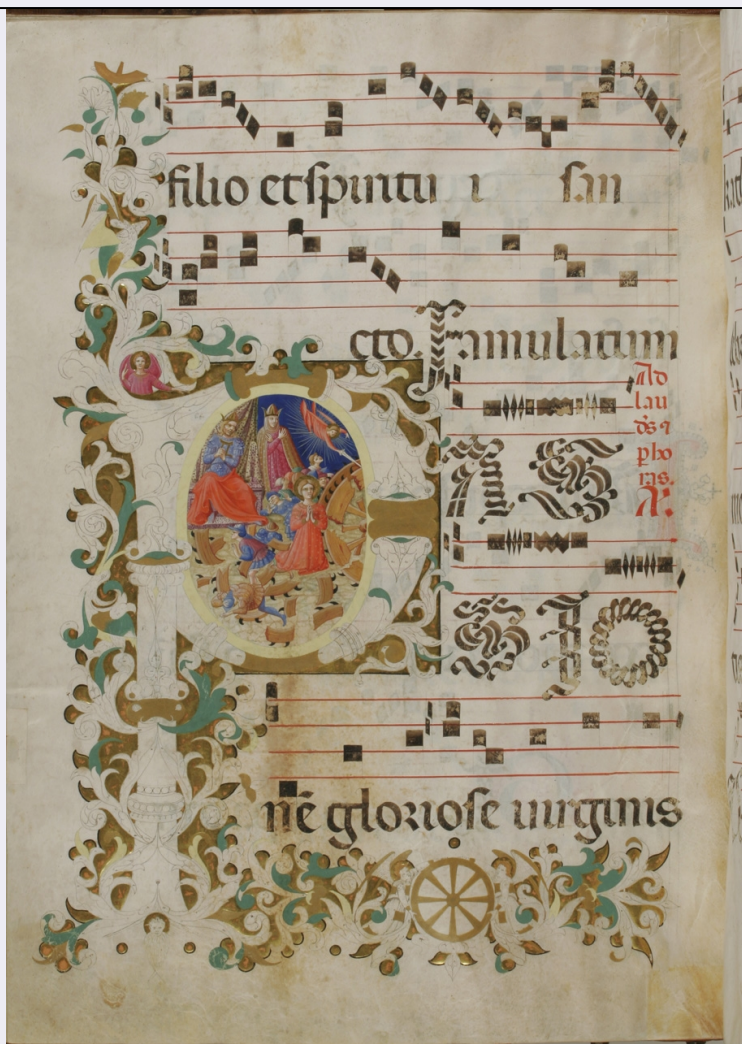 filio et spiritu i san
cto. Famulatum
Ad
lau
ds ⁊
p ho
ras.
A.
PAS
SIO
nē gloriose uirginis